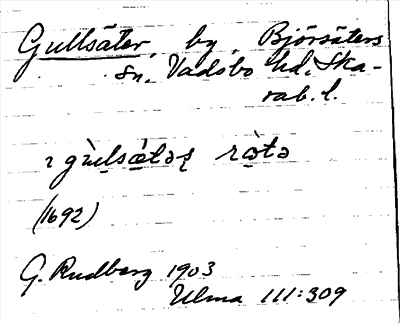 Gullsäter, by, Björsäters
sn, Vadsbo hd, Ska-
rab. l.
(1692)
G. Rudberg 1903
Ulma 111:309